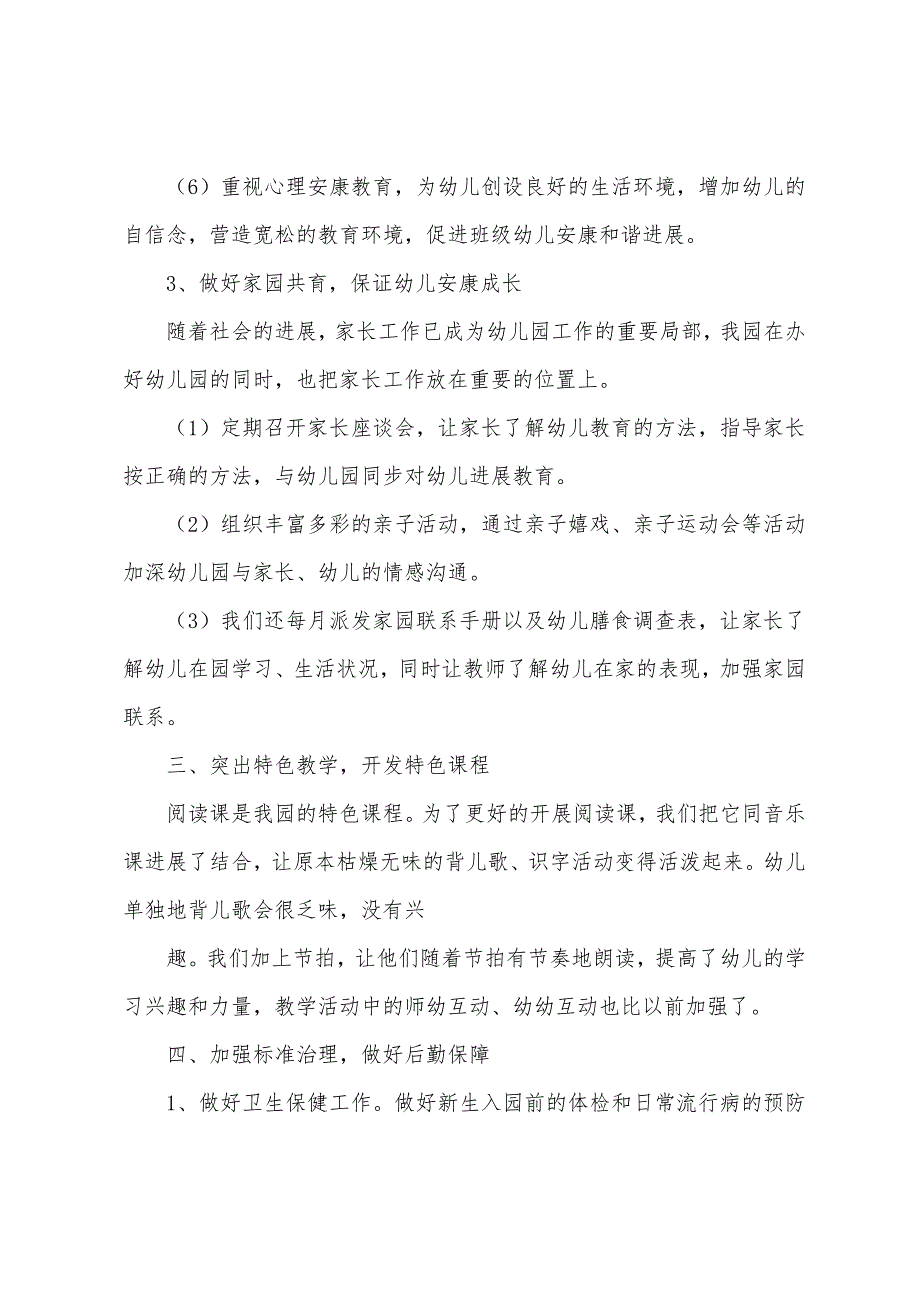 （6）重视心理安康教育，为幼儿创设良好的生活环境，增加幼儿的
自信念，营造宽松的教育环境，促进班级幼儿安康和谐进展。
3、做好家园共育，保证幼儿安康成长
随着社会的进展，家长工作已成为幼儿园工作的重要局部，我园在办
好幼儿园的同时，也把家长工作放在重要的位置上。
（1）定期召开家长座谈会，让家长了解幼儿教育的方法，指导家长
按正确的方法，与幼儿园同步对幼儿进展教育。
（2）组织丰富多彩的亲子活动，通过亲子嬉戏、亲子运动会等活动
加深幼儿园与家长、幼儿的情感沟通。
（3）我们还每月派发家园联系手册以及幼儿膳食调查表，让家长了
解幼儿在园学习、生活状况，同时让教师了解幼儿在家的表现，加强家园
联系。
三、突出特色教学，开发特色课程
阅读课是我园的特色课程。为了更好的开展阅读课，我们把它同音乐
课进展了结合，让原本枯燥无味的背儿歌、识字活动变得活泼起来。幼儿
单独地背儿歌会很乏味，没有兴
趣。我们加上节拍，让他们随着节拍有节奏地朗读，提高了幼儿的学
习兴趣和力量，教学活动中的师幼互动、幼幼互动也比以前加强了。
四、加强标准治理，做好后勤保障
1、做好卫生保健工作。做好新生入园前的体检和日常流行病的预防